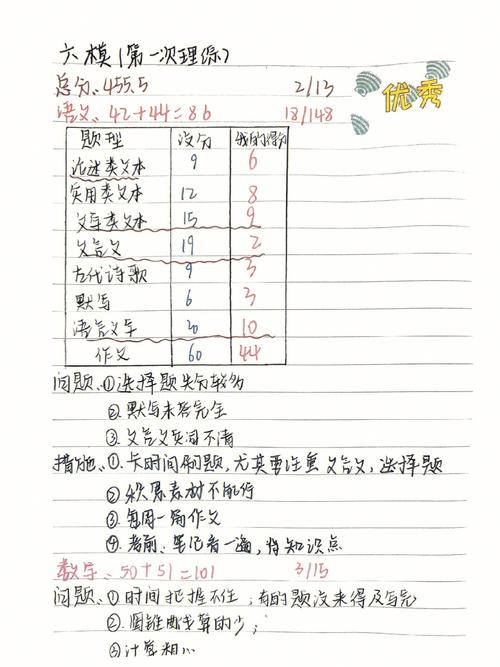 六模(第一次理综)
总分、455.5 2/13
优秀
语文、42+44=86 18/148
题型 没分 我的得分
论述类文本 9 6
实用类文本 12 8
文学类文本 15 9
文言文 19 2
古代诗歌 9 3
默写 6 3
语言文字 20 10
作文 60 44
问题、①选择题失分较多
②默写未答完全
③文言文实词不清
措施、①、卡时间刷题,尤其要注重文言文,选择题
②积累素材不能停
③每周一篇作文
④考前、笔记看一遍,将知识点
数学、50+51=101 3/15
问题、①时间把握不住,有的题没来得及写完
②圆锥曲线算的少;
③计算粗心